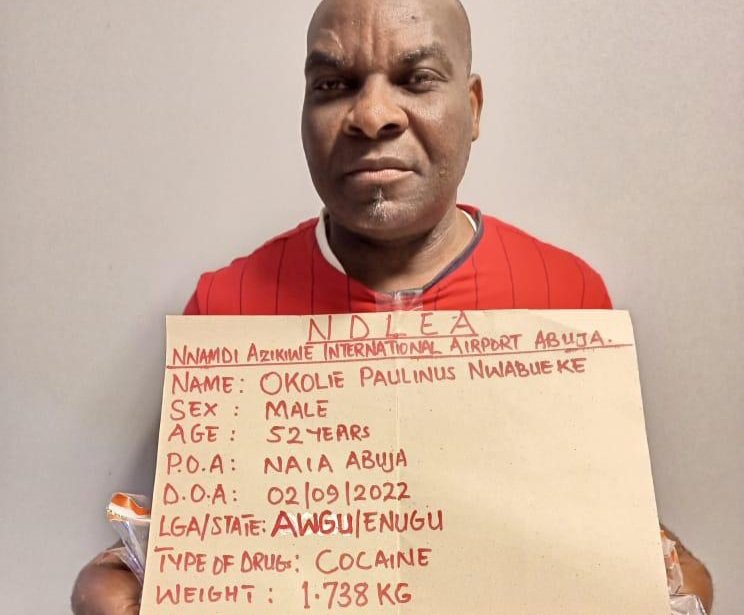 NDLEA
NNAMDI AZIKIWE INTERNATIONAL AIRPORT ABUJA.
NAME: OKOLIE PAULINUS NWABUEKE
SEX : MALE
AGE : 52 YEARS
P.O.A: NAIA ABUJA
D.O.A: 02/09/2022
LGA/STATE: AWGU/ENUGU
TYPE OF DRUG: COCAINE
WEIGHT : 1.738 KG